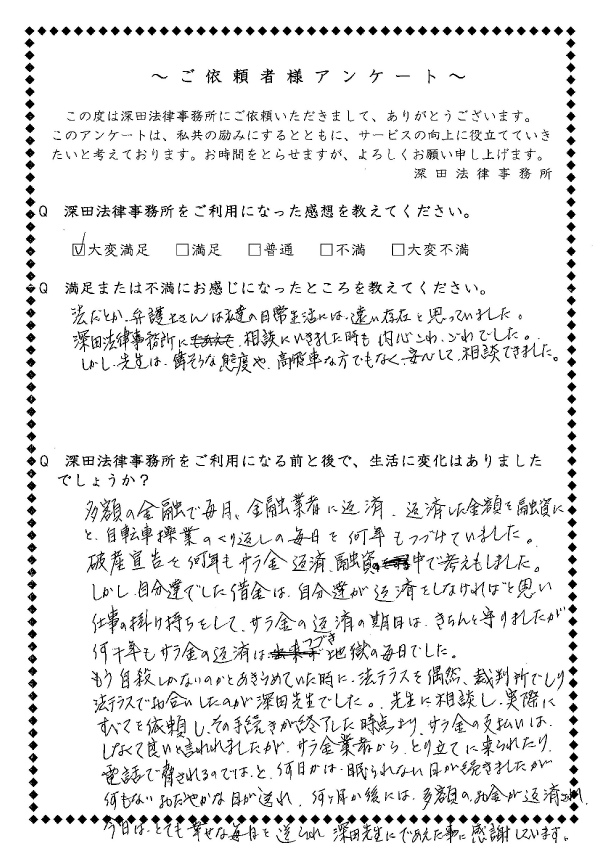 ～ご依頼者様アンケート～
この度は深田法律事務所にご依頼いただきまして、ありがとうございます。
このアンケートは、私共の励みにするとともに、サービスの向上に役立てていき
たいと考えております。お時間をとらせますが、よろしくお願い申し上げます。
深田法律事務所
Q 深田法律事務所をご利用になった感想を教えてください。
☑大変満足 □満足 □普通 □不満 □大変不満
Q 満足または不満にお感じになったところを教えてください。
法だとか、弁護士さんは私達の日常生活には、遠い存在と思っていました。
深田法律事務所に 相談にいきました時も内心こわごわでした。
しかし、先生は、偉そうな態度や、高飛車な方でもなく、安心して、相談できました。
Q 深田法律事務所をご利用になる前と後で、生活に変化はありました
でしょうか？
多額の金融で毎月、金融業者に返済、返済した金額を融資に
と、自転車操業のくり返しの毎日を何年もつづけていました。
破産宣告を何年もサラ金返済、融資の中で考えもしました。
しかし、自分達でした借金は、自分達が返済をしなければと思い
仕事の掛け持ちをして、サラ金の返済の期日は、きちんと守りましたが
何十年もサラ金の返済はつづき地獄の毎日でした。
もう自殺しかないのかとあきらめていた時に、法テラスを偶然、裁判所でしり
法テラスでお会いしたのが深田先生でした。先生に相談し、実際に
すべてを依頼し、その手続きが終了した時点より、サラ金の支払いは、
しなくて良いと言われましたが、サラ金業者から、とり立てに来られたり、
電話で脅されるのではと、何日かは、眠られない日が続きましたが
何もないおだやかな日が送れ、何ヶ月か後には、多額のお金が返済され、
今日は、とても幸せな毎日を送られ 深田先生にであえた事に感謝しています。